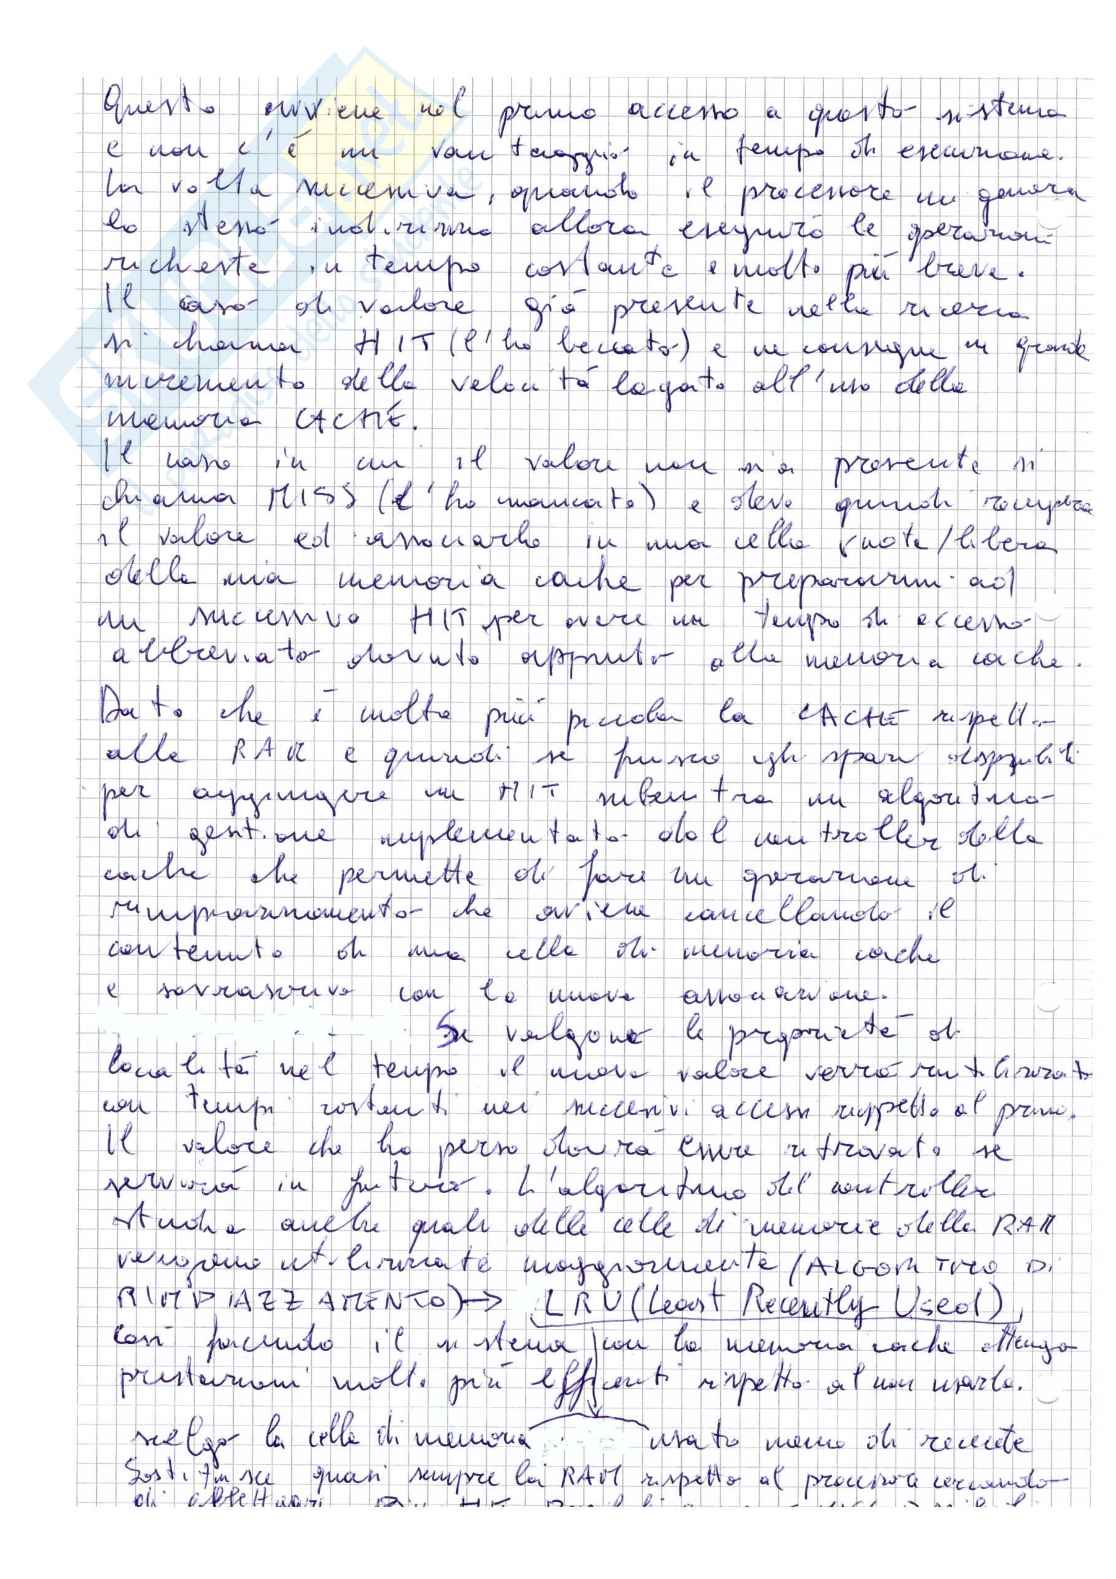 Questo avviene nel primo accesso a questo sistema
e non c'è un vantaggio in tempo di esecuzione.
La volta successiva, quando il processore mi genera
lo stesso indirizzo allora eseguirò le operazioni
richieste in tempo costante e molto più breve.
Il caso di valore già presente nella ricerca
si chiama HIT (l'ho beccato) e ne consegue un grande
incremento della velocità legato all'uso della
memoria CACHE.
Il caso in cui il valore non sia presente si
chiama MISS (l'ho mancato) e devo quindi recuperare
il valore ed associarlo in una cella vuota/libera
della mia memoria cache per prepararmi ad
un successivo HIT per avere un tempo di accesso
abbreviato dovuto appunto alla memoria cache.
Dato che è molto più piccola la CACHE rispetto
alla RAM e quindi se finisco gli spazi disponibili
per aggiungere un HIT subentra un algoritmo
di gestione implementato dal controller della
cache che permette di fare un operazione di
rimpiazzamento che avviene cancellando il
contenuto di una cella di memoria cache
e sovrascrivo con la nuova associazione.
Se valgono le proprietà di
località nel tempo il nuovo valore verrà riutilizzato
con tempi costanti nei successivi accessi rispetto al primo.
Il valore che ho perso dovrà essere ritrovato se
servirà in futuro. L'algoritmo del controller
studia anche quali delle celle di memorie della RAM
vengono utilizzate maggiormente (ALGORITMO DI
RIMPIAZZAMENTO) → LRU (Least Recently Used),
Così facendo il sistema con la memoria cache ottengo
prestazioni molto più efficienti rispetto al non usarla.
scelgo la cella di memoria usato meno di recente
Sostituisce quasi sempre la RAM rispetto al processore cercando
di effettuare più HIT